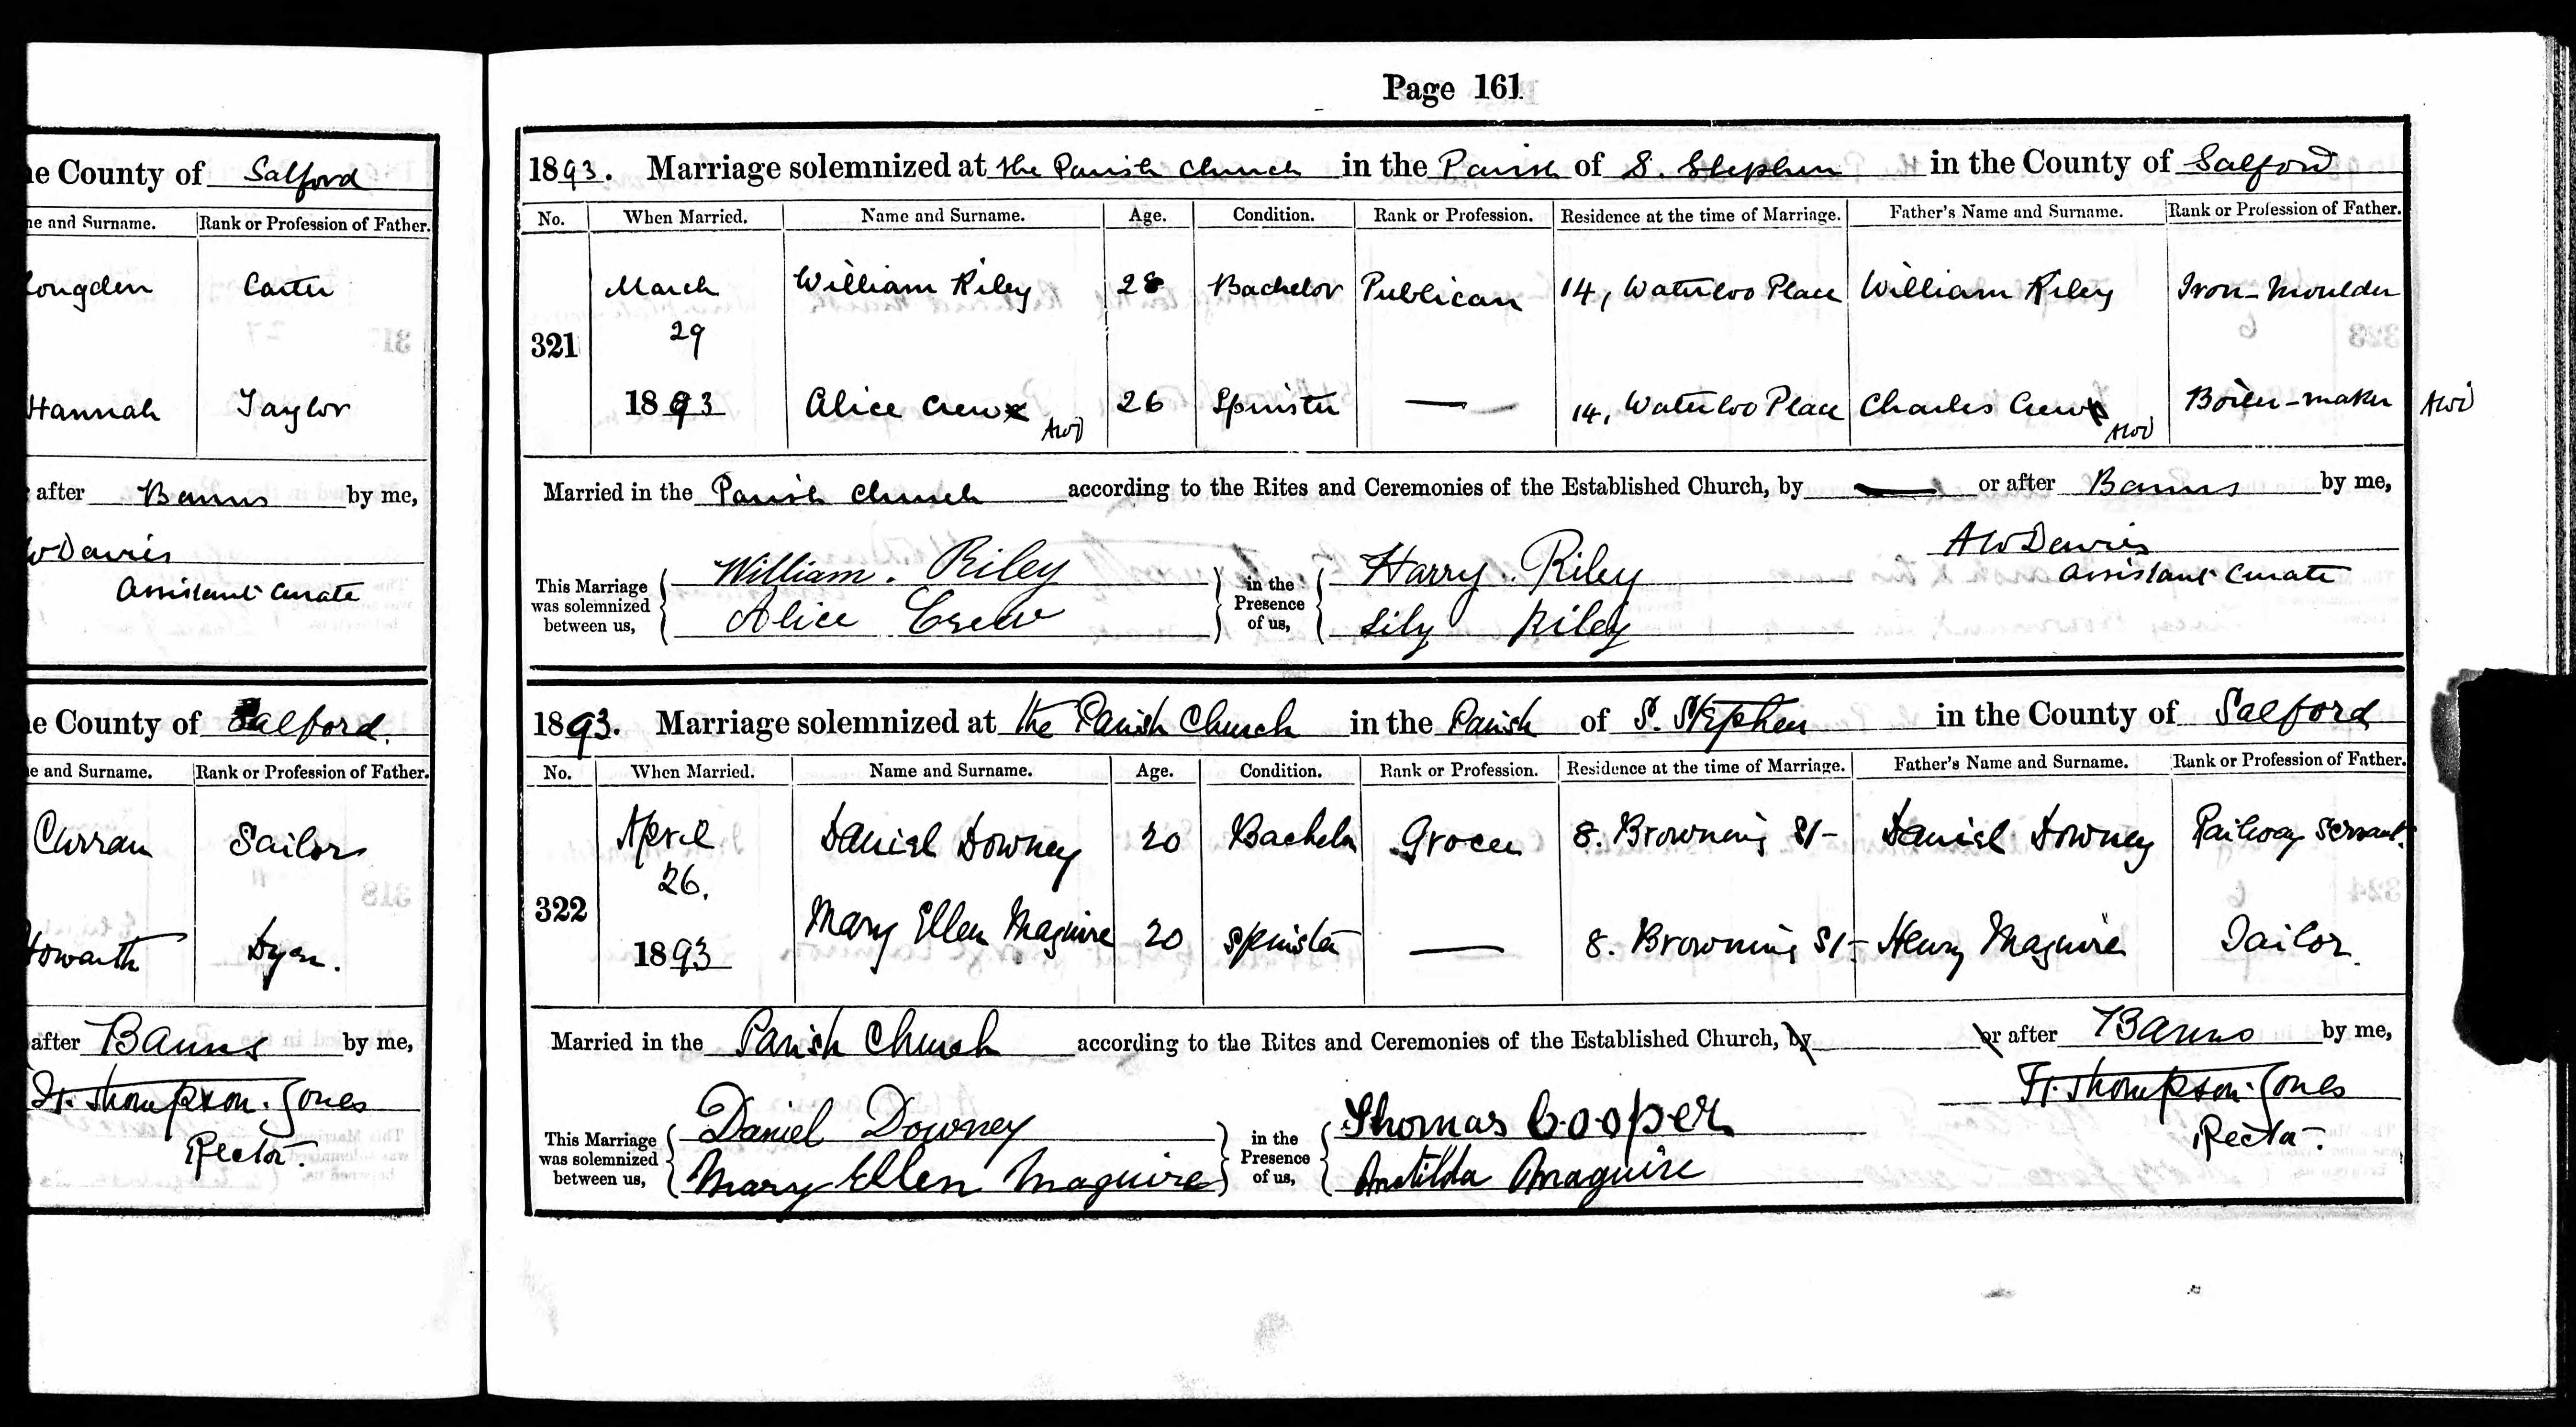 e County of Salford
ne and Surname. Rank or Profession of Father.
Longden Carter
Hannah Taylor
after Banns by me,
W Davies
Assistant Curate
e County of Salford.
e and Surname. Rank or Profession of Father.
Curran Sailor
Howarth Dyer.
after Banns by me,
H. Thompson-Jones
Rector.
Page 161
1893. Marriage solemnized at the Parish Church in the Parish of S. Stephen in the County of Salford
No. When Married. Name and Surname. Age. Condition. Rank or Profession. Residence at the time of Marriage. Father's Name and Surname. Rank or Profession of Father.
321 March 29 1893
William Riley 28 Bachelor Publican 14, Waterloo Place William Riley Iron-Moulder
Alice Crew AWD 26 Spinster — 14, Waterloo Place Charles Crew AWD Boiler-maker AWD
Married in the Parish Church according to the Rites and Ceremonies of the Established Church, by — or after Banns by me,
AW Davies
Assistant Curate
This Marriage was solemnized between us, William. Riley in the Presence of us, Harry. Riley
Alice Crew Lily Riley
1893. Marriage solemnized at the Parish Church in the Parish of S. Stephen in the County of Salford
No. When Married. Name and Surname. Age. Condition. Rank or Profession. Residence at the time of Marriage. Father's Name and Surname. Rank or Profession of Father.
322 April 26. 1893
Daniel Downey 20 Bachelor Grocer 8. Browning St- Daniel Downey Railway Servant.
Mary Ellen Maguire 20 Spinster — 8. Browning St- Henry Maguire Tailor.
Married in the Parish Church according to the Rites and Ceremonies of the Established Church, by or after Banns by me,
H. Thompson-Jones
Rector.
This Marriage was solemnized between us, Daniel Downey in the Presence of us, Thomas Cooper
Mary Ellen Maguire Matilda Maguire